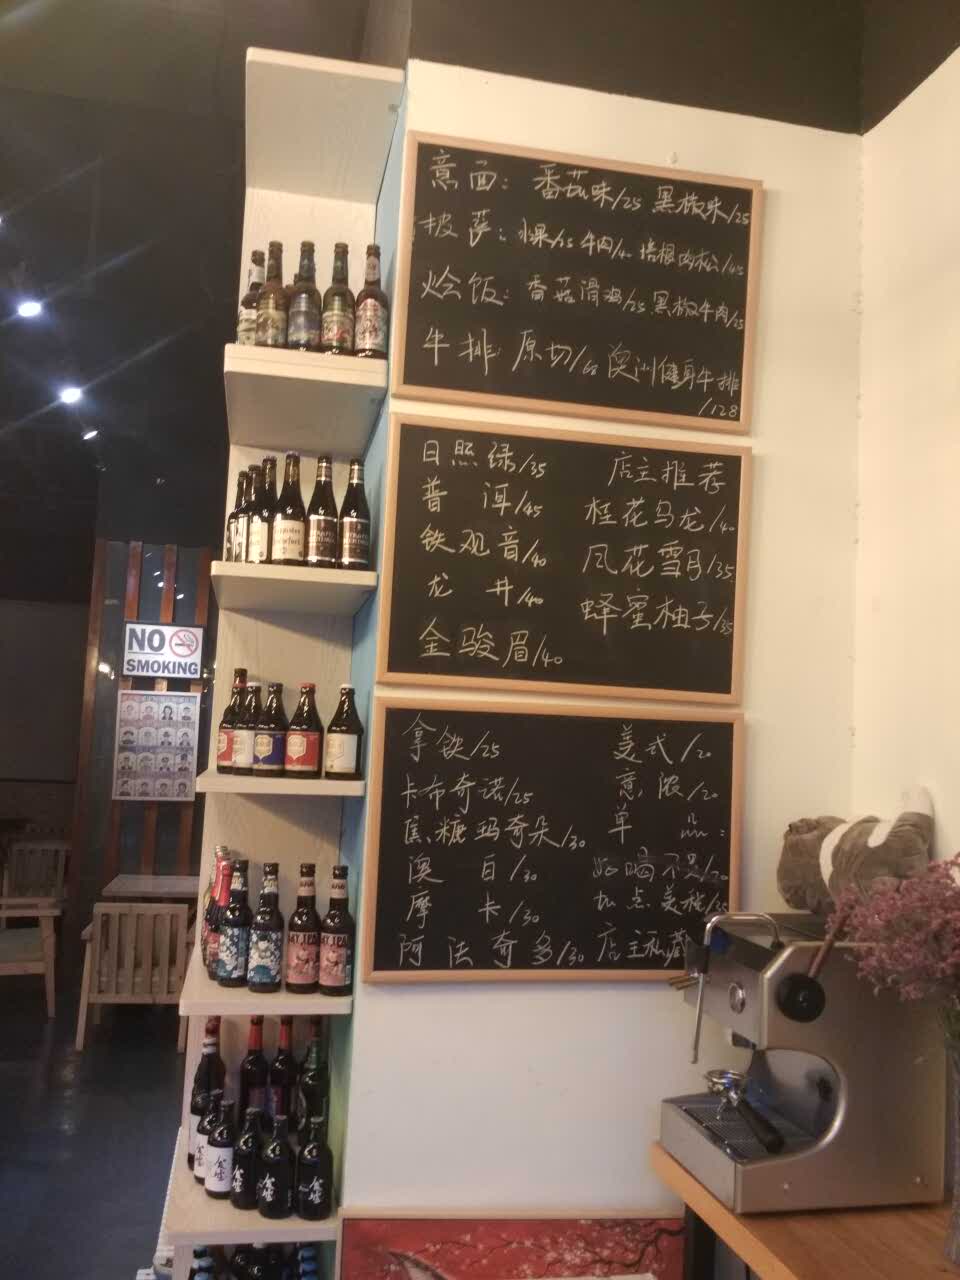 意面: 番茄味/25 黑椒味/25
披萨: 水果/35 牛肉/40 培根肉松/45
烩饭: 香菇滑鸡/25 黑椒牛肉/25
牛排: 原切/68 澳洲健身牛排
/128
日照绿/35
普洱/45
铁观音/40
龙井/40
金骏眉/40
店主推荐
桂花乌龙/40
风花雪月/35
蜂蜜柚子/35
拿铁/25
卡布奇诺/25
焦糖玛奇朵/30
澳白/30
摩卡/30
阿法奇多/30
美式/20
意浓/20
单品:
好喝不贵/20
加点美程/35
店主私藏
NO
SMOKING